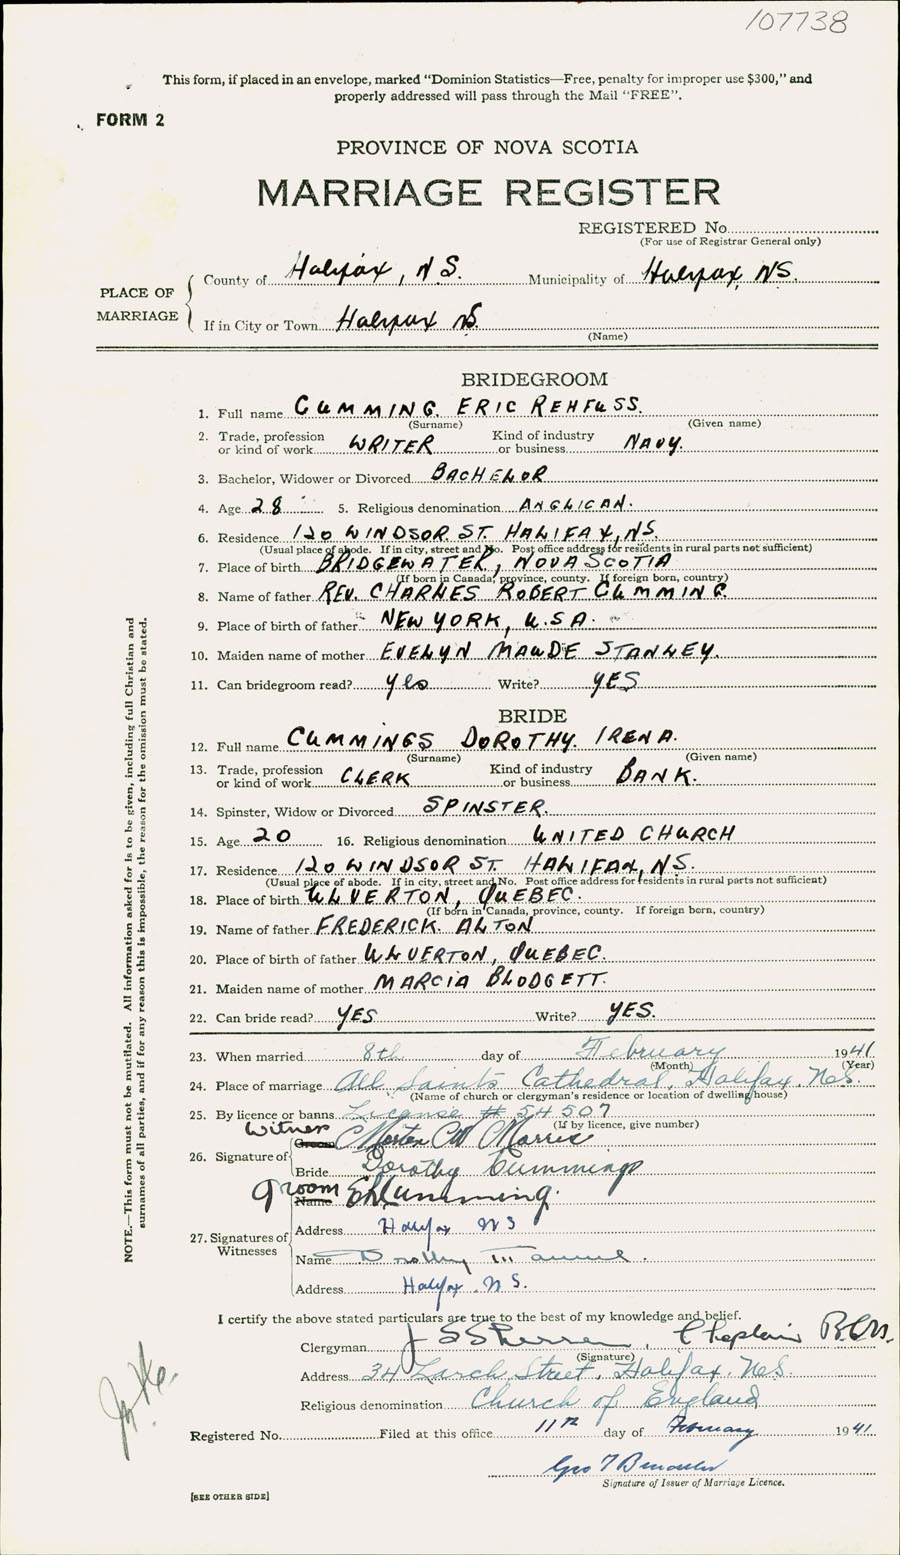 107738
This form, if placed in an envelope, marked "Dominion Statistics—Free, penalty for improper use $300," and
properly addressed will pass through the Mail "FREE".
FORM 2
PROVINCE OF NOVA SCOTIA
MARRIAGE REGISTER
REGISTERED No.
(For use of Registrar General only)
PLACE OF MARRIAGE
County of Halifax, N.S. Municipality of Halifax, NS.
If in City or Town Halifax NS.
(Name)
BRIDEGROOM
1. Full name CUMMING. ERIC REHFUSS.
(Surname) (Given name)
2. Trade, profession or kind of work WRITER Kind of industry or business NAVY.
3. Bachelor, Widower or Divorced BACHELOR
4. Age 28 5. Religious denomination ANGLICAN.
6. Residence 120 WINDSOR ST. HALIFAX, NS.
(Usual place of abode. If in city, street and No. Post office address for residents in rural parts not sufficient)
7. Place of birth BRIDGEWATER, NOVA SCOTIA
(If born in Canada, province, county. If foreign born, country)
8. Name of father REV. CHARLES ROBERT CUMMING.
9. Place of birth of father NEW YORK, U.S.A.
10. Maiden name of mother EVELYN MAUDE STANLEY.
11. Can bridegroom read? Yes Write? YES
BRIDE
12. Full name CUMMINGS DOROTHY. IRENA.
(Surname) (Given name)
13. Trade, profession or kind of work CLERK Kind of industry or business BANK.
14. Spinster, Widow or Divorced SPINSTER.
15. Age 20 16. Religious denomination UNITED CHURCH
17. Residence 120 WINDSOR ST. HALIFAX, NS.
(Usual place of abode. If in city, street and No. Post office address for residents in rural parts not sufficient)
18. Place of birth ULVERTON, QUEBEC.
(If born in Canada, province, county. If foreign born, country)
19. Name of father FREDERICK. ALTON
20. Place of birth of father ULVERTON, QUEBEC.
21. Maiden name of mother MARCIA BLODGETT.
22. Can bride read? YES Write? YES.
23. When married 8th day of February 1941
(Month) (Year)
24. Place of marriage All Saints Cathedral, Halifax, N.S.
(Name of church or clergyman's residence or location of dwelling house)
25. By licence or banns License # 54507
(If by licence, give number)
26. Signature of
Witness Groom Morris
Bride Dorothy Cummings
groom Name Cumming.
27. Signatures of Witnesses
Address Halifax NS
Name Dorothy
Address Halifax. N.S.
I certify the above stated particulars are true to the best of my knowledge and belief.
Clergyman Chaplain
(Signature)
Address 34 Larch Street, Halifax, N.S.
Religious denomination Church of England
Registered No. Filed at this office 11th day of February 1941.
Signature of Issuer of Marriage Licence.
[SEE OTHER SIDE]
NOTE.—This form must not be mutilated. All information asked for is to be given, including full Christian and
surnames of all parties, and if for any reason this is impossible, the reason for the omission must be stated.